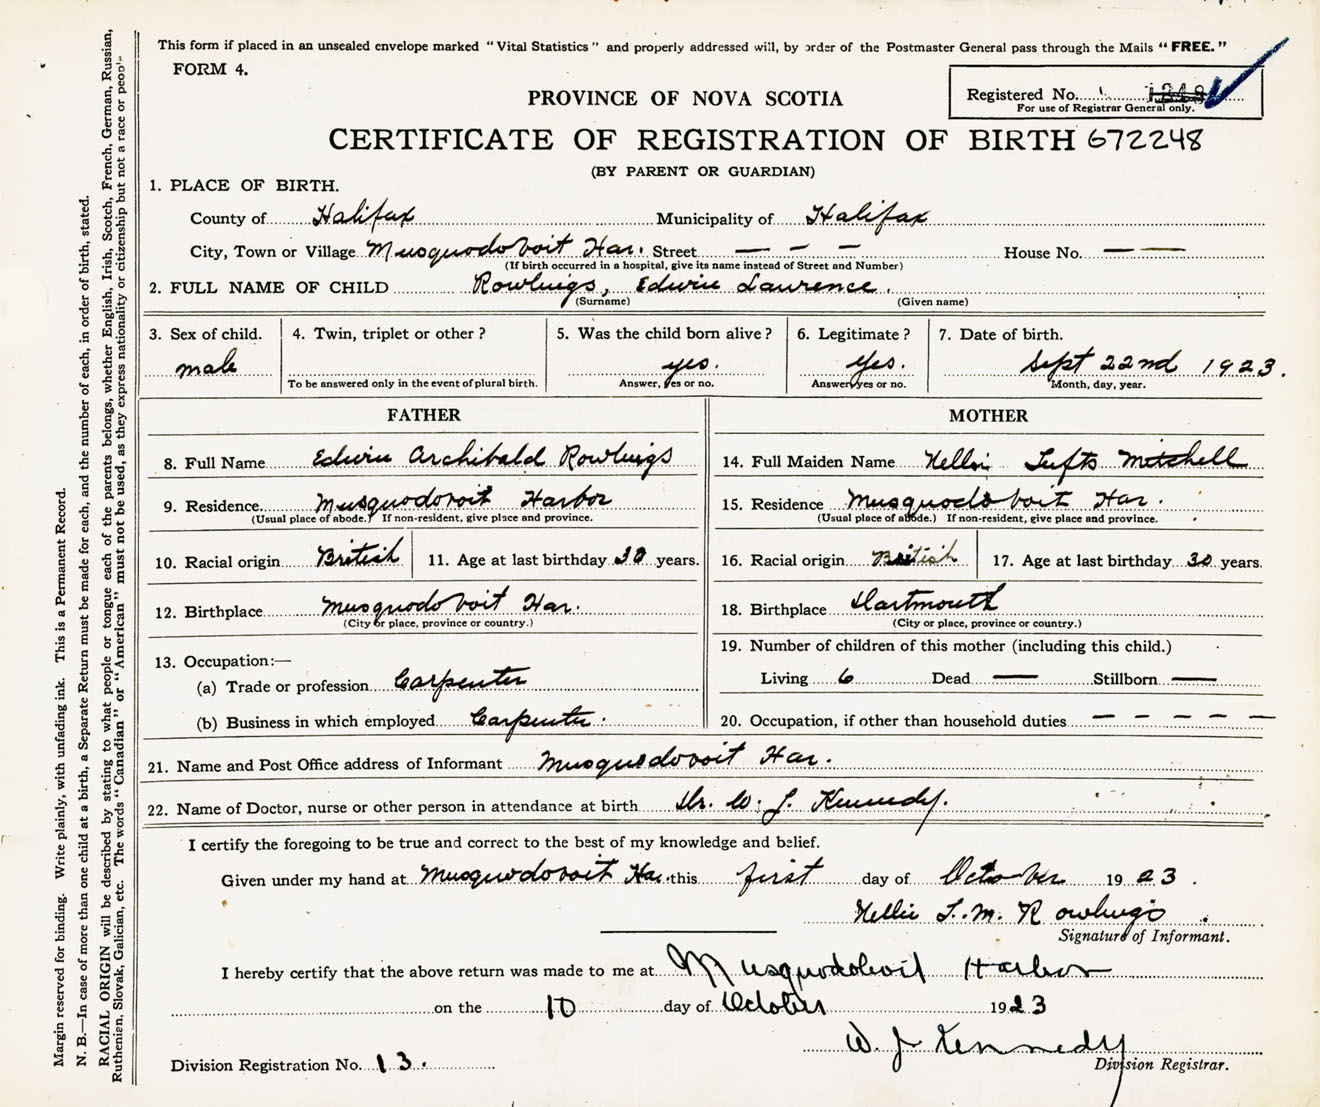 This form if placed in an unsealed envelope marked "Vital Statistics" and properly addressed will, by order of the Postmaster General pass through the Mails "FREE."
FORM 4.
Registered No.
For use of Registrar General only.
PROVINCE OF NOVA SCOTIA
CERTIFICATE OF REGISTRATION OF BIRTH 672248
(BY PARENT OR GUARDIAN)
1. PLACE OF BIRTH.
County of Halifax Municipality of Halifax
City, Town or Village Musquodoboit Har. Street — – – House No. — —
(If birth occurred in a hospital, give its name instead of Street and Number)
2. FULL NAME OF CHILD Rowlings, Edwin Laurence.
(Surname) (Given name)
3. Sex of child. 4. Twin, triplet or other? 5. Was the child born alive? 6. Legitimate? 7. Date of birth.
male yes. Yes. Sept 22nd 1923.
To be answered only in the event of plural birth. Answer, yes or no. Answer yes or no. Month, day, year.
FATHER MOTHER
8. Full Name Edwin Archibald Rowlings 14. Full Maiden Name Nellie Tufts Mitchell
9. Residence. Musquodoboit Harbor 15. Residence Musquodoboit Har.
(Usual place of abode.) If non-resident, give place and province. (Usual place of abode.) If non-resident, give place and province.
10. Racial origin British 11. Age at last birthday years. 16. Racial origin British 17. Age at last birthday 30 years.
12. Birthplace Musquodoboit Har. 18. Birthplace Dartmouth
(City or place, province or country.) (City or place, province or country.)
13. Occupation:— 19. Number of children of this mother (including this child.)
(a) Trade or profession Carpenter Living 6 Dead — Stillborn —
(b) Business in which employed Carpenter. 20. Occupation, if other than household duties – – – – –
21. Name and Post Office address of Informant Musquodoboit Har.
22. Name of Doctor, nurse or other person in attendance at birth Dr. W. J. Kennedy.
I certify the foregoing to be true and correct to the best of my knowledge and belief.
Given under my hand at Musquodoboit Har. this first day of October 1923.
Nellie T. M. Rowlings.
Signature of Informant.
I hereby certify that the above return was made to me at Musquodoboit Harbor
on the 10 day of October 1923
W. J. Kennedy
Division Registration No. 13. Division Registrar.
Margin reserved for binding. Write plainly, with unfading ink. This is a Permanent Record.
N. B.—In case of more than one child at a birth, a Separate Return must be made for each, and the number of each, in order of birth, stated.
RACIAL ORIGIN will be described by stating to what people or tongue each of the parents belongs, whether English, Irish, Scotch, French, German, Russian,
Ruthenien, Slovak, Galician, etc. The words "Canadian" or "American" must not be used, as they express nationality or citizenship but not a race or